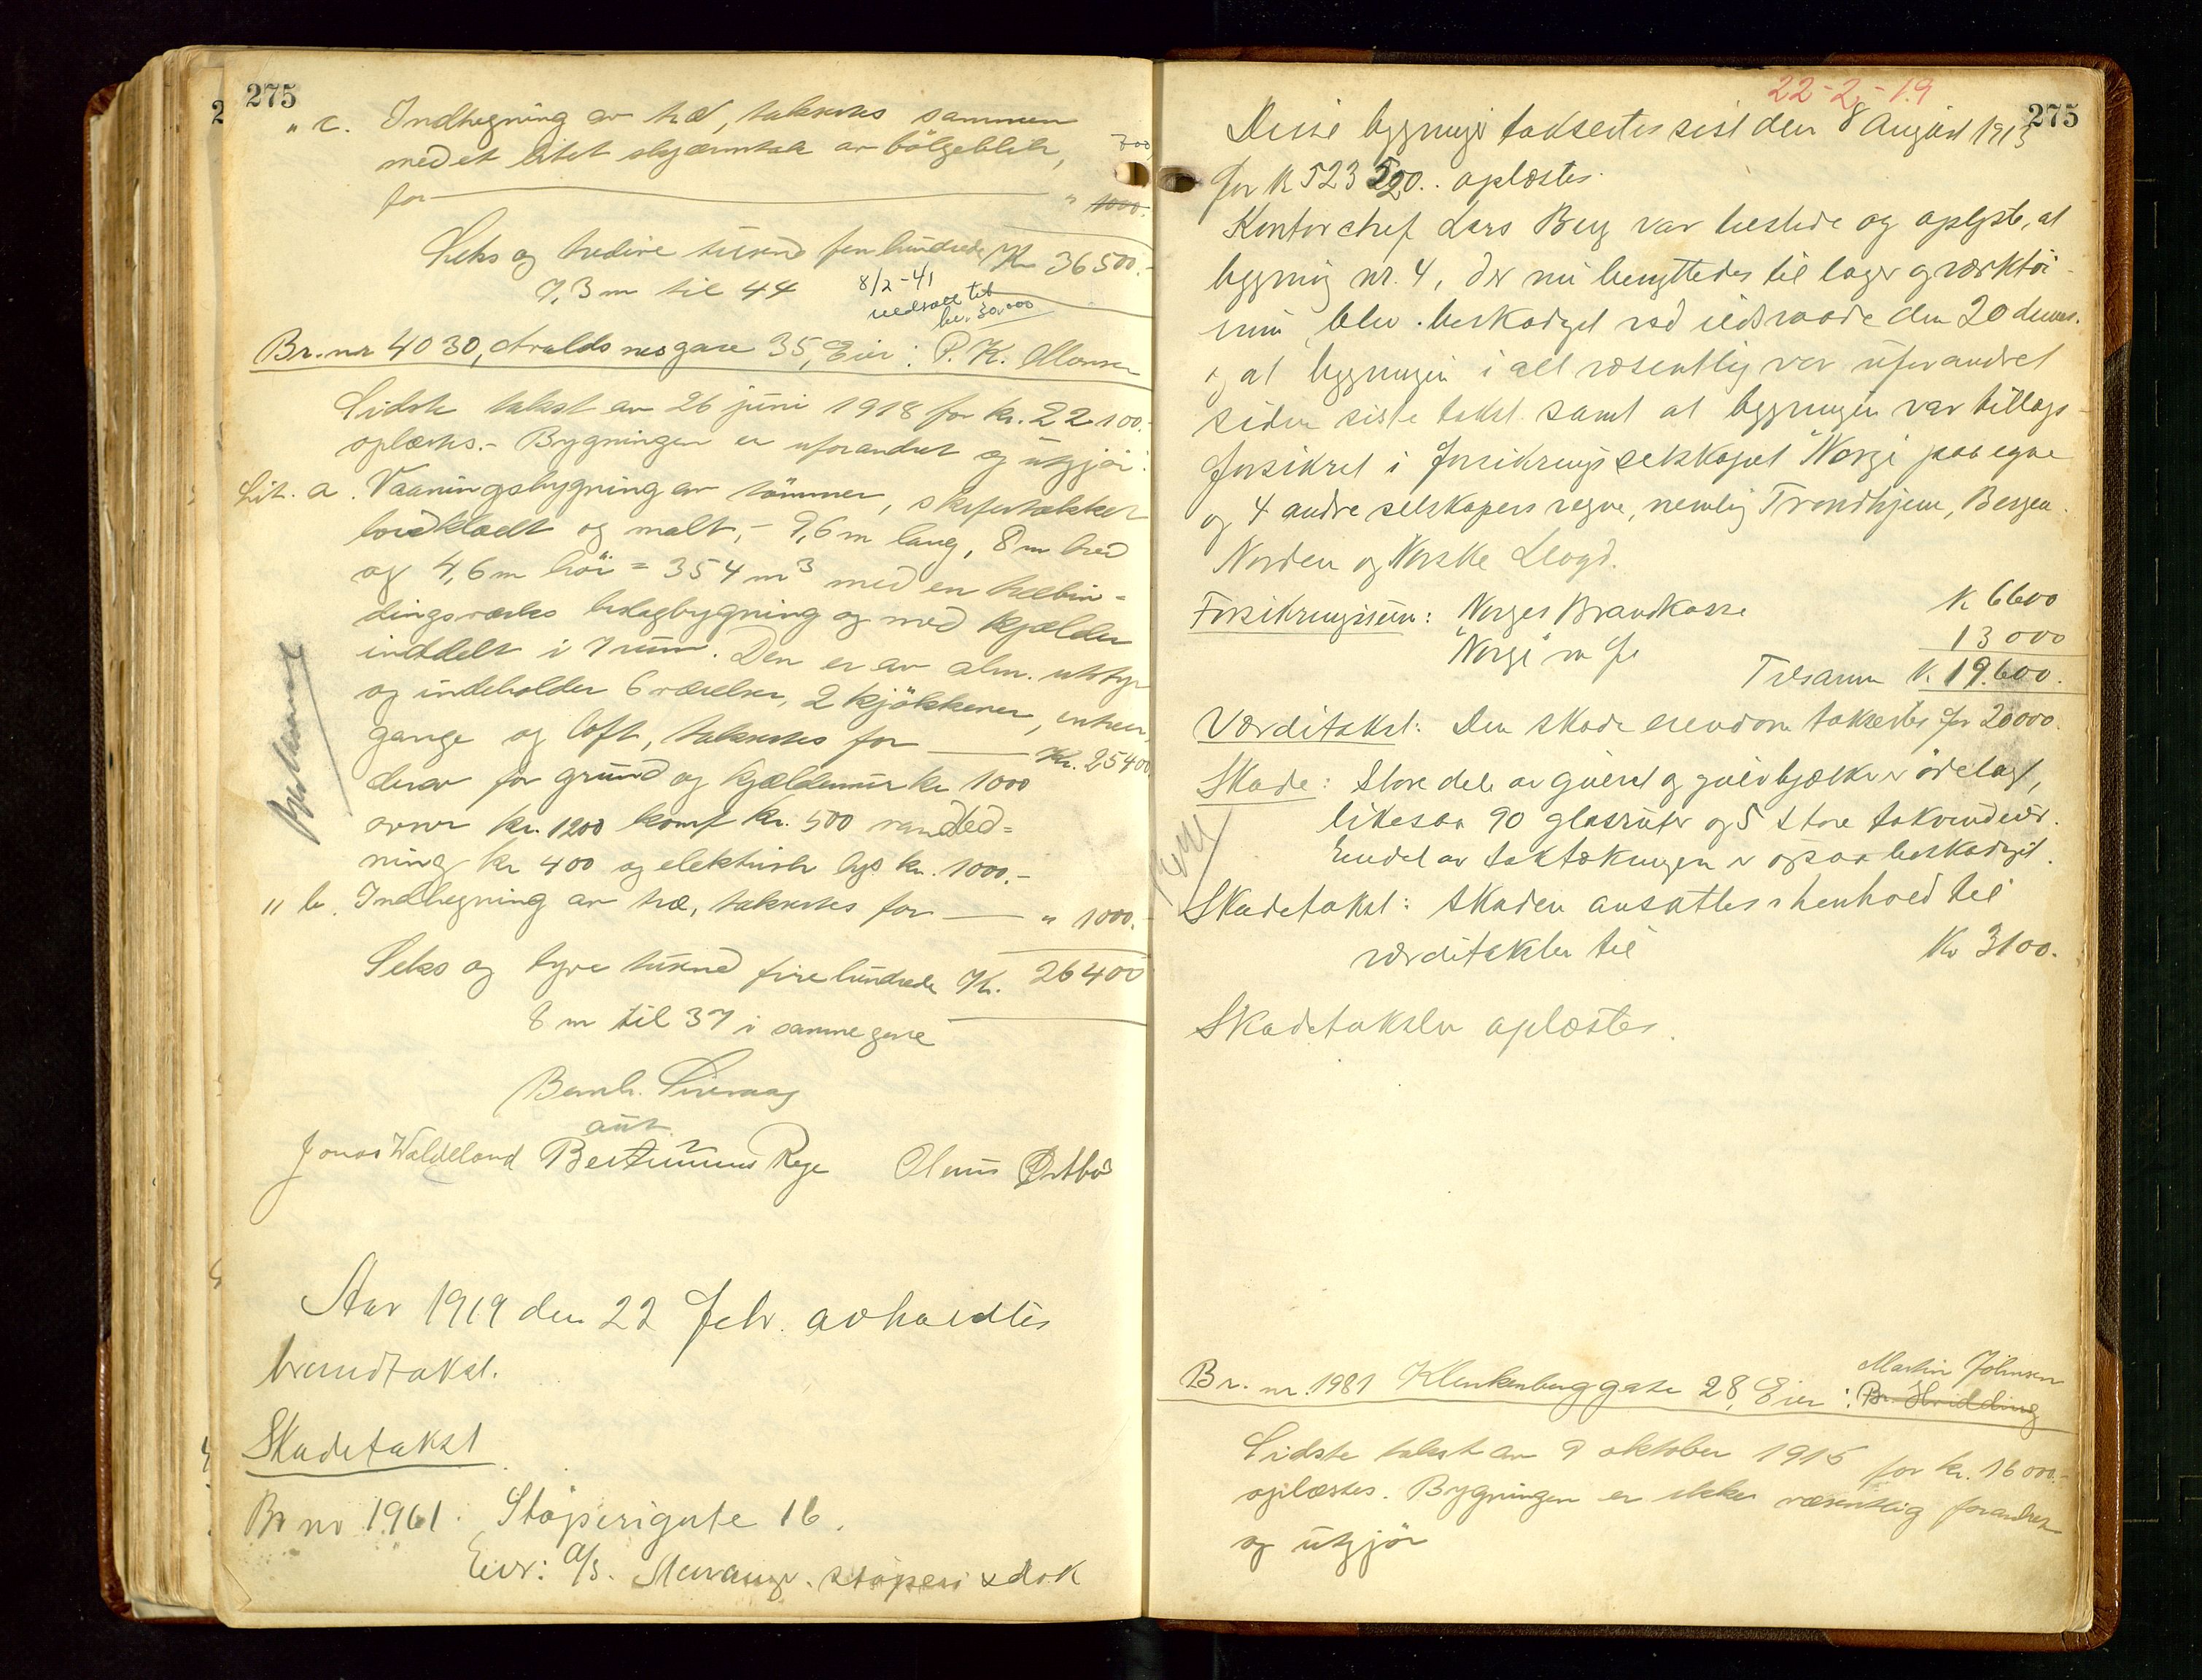 275
" c. Indhegning av træ, taksertes sammen
med et litet skjærmtak av bölgeblik, 700
for " 1000.-
Seks og tredive tusend fem hundrede Kr 36500.-
7,3 m til 44
8/2-41
nedsatt til
kr. 30.000
Br. nr 4030, Avaldsnesgate 35, Eier: P. K. Monsen
Sidste takst av 26 juni 1918 for kr. 22100.-
oplæstes.- Bygningen er uforandret og utgjör:
Lit. a. Vaaningsbygning av tömmer, skifertækket
bordklædt og malt, - 9,6 m lang, 8 m bred
og 4,6 m höi = 354 m³ med en utbin=
dingsverks bislagbygning og med kjælder
inddelt i 7 rum. Den er av alm. utstyr
og indeholder 6 værelser, 2 kjökkener, entreer,
gange og loft, taksertes for Kr. 25400
derav for grund og kjældermur kr 1000
ovner kr. 1200 komf kr. 500 vandled=
ning kr 400 og elektrisk lys kr. 1000.-
" b. Indhegning av træ, taksertes for " 1000.-
Seks og tyve tusend fire hundrede Kr. 26400
8 m til 37 i samme gate
Bernh.
aut
Jonas Waldeland Bertinius Rege Olaus Östbö
Aar 1919 den 22 Febr. avholdtes
brandtakst.
Skadetakst
Br nr 1961. Stöperigate 16.
Eier: A/S. Stavanger. Stöperi & dok
22-2-19
275
Disse bygninger taksertes sist den 8 August 1913
for K 523 520.. oplæstes.
Kontorchef Lars Berg var tilstede og oplyste, at
bygning nr. 4, der nu benyttedes til lager og verktöi-
rum blev beskadiget ved ildsvaade den 20 dennes.
og at bygningen i alt væsentlig var uforandret
siden siste takst samt at bygningen var tillægs-
forsikret i forsikringsselskapet "Norge" paa egne
og 4 andre selskapers vegne, nemlig Trondhjem, Bergen.
Norden og Norske Lloyd.
Forsikringssum: Norges Brandkasse K 6600
"Norge" m fl 13 000
Tilsamm K 19.600.
Værditakst: Den skade eiendom taksertes for 20000.
Skade: Store dele av gulvet og gulvbjælker er ödelagt,
likesaa 90 glasruter og 5 store takvinduer.
Endel av taktækningen er ogsaa beskadiget.
Skadetakst: Skaden ansættes i henhold til
værditakster til Kr 3100.
Skadetaksten oplæstes.
Br. nr. 1981 Klinkenberggate 28, Eier: Br. Hvidding
Martin Johnsen
Sidste takst av 9 oktober 1915 for kr. 16000.-
oplæstes. Bygningen er ikke væsentlig forandret
og utgjör